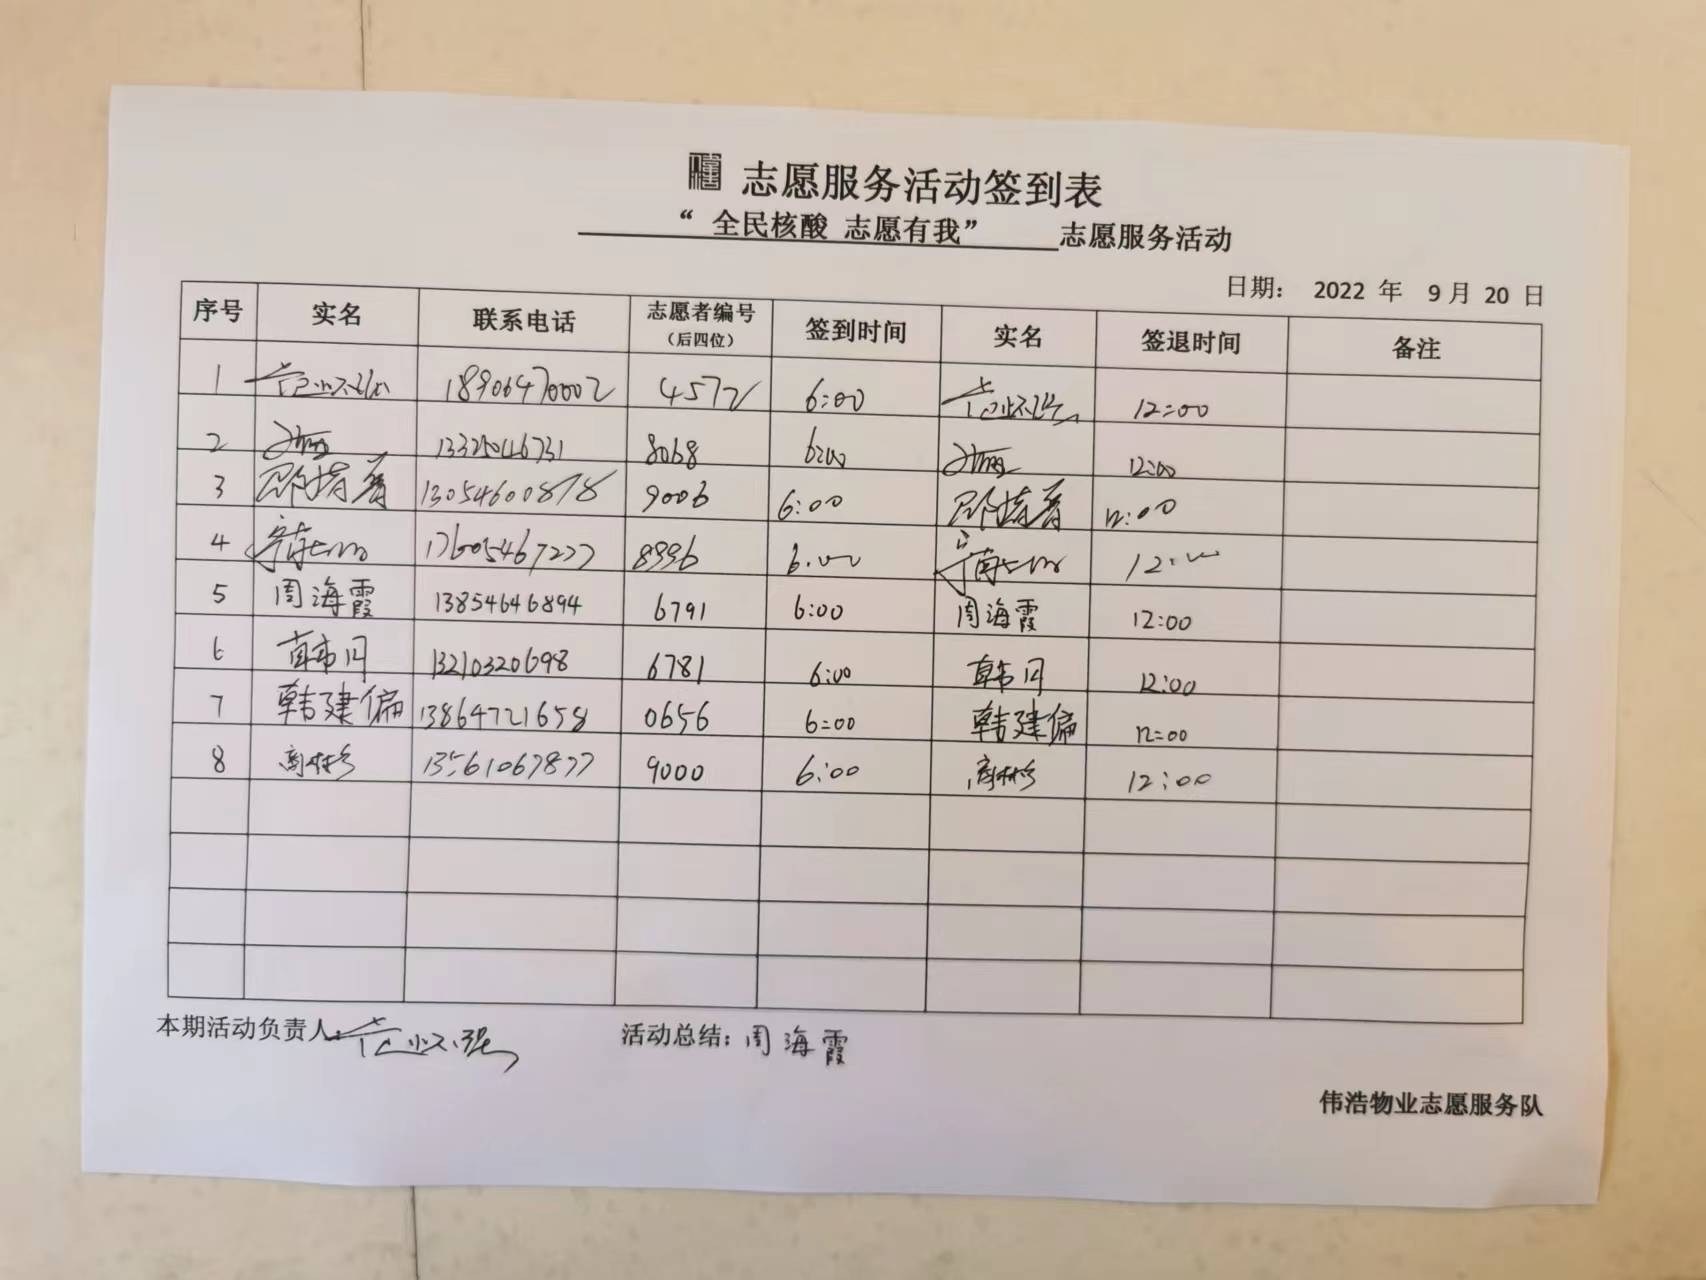 志愿服务活动签到表
“ 全民核酸 志愿有我” 志愿服务活动
日期： 2022 年 9 月 20 日
序号 实名 联系电话 志愿者编号（后四位） 签到时间 实名 签退时间 备注
1 18906470002 4572 6:00 12:00
2 13325046731 8068 6:00 12:00
3 13054600878 9006 6:00 12:00
4 17605467277 8996 6:00 12:00
5 周海霞 13854646894 6791 6:00 周海霞 12:00
6 韩月 13210320698 6781 6:00 韩月 12:00
7 韩建偏 13864721658 0656 6:00 韩建偏 12:00
8 13561067877 9000 6:00 12:00
本期活动负责人: 活动总结: 周海霞
伟浩物业志愿服务队